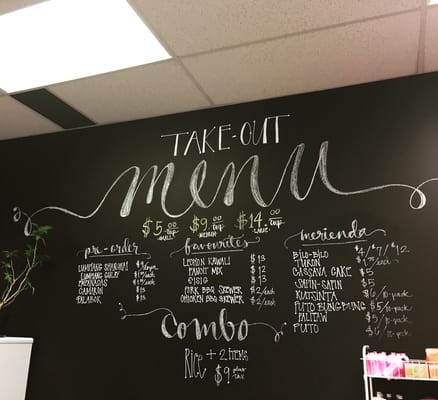 TAKE-OUT
menu
$5.00/cup $9.00/cup $14.00/cup
SMALL MEDIUM LARGE
pre-order
LUMPIANG SHANGHAI
LUMPIANG GULAY
EMPANADAS
CAMARON
PALABOK
favourites
LECHON KAWALI $13
PANCIT MIX $12
SISIG $13
PORK BBQ SKEWER $2/each
CHICKEN BBQ SKEWER $2/each
merienda
BILO-BILO $4/$7/$12
TURON
CASSAVA CAKE $5
SAPIN-SAPIN $5
KUTSINTA $6/10-pack
PUTO BUMBUNG $5
PALITAW $5
PUTO $6
combo
RICE + 2 ITEMS
$9 plus tax